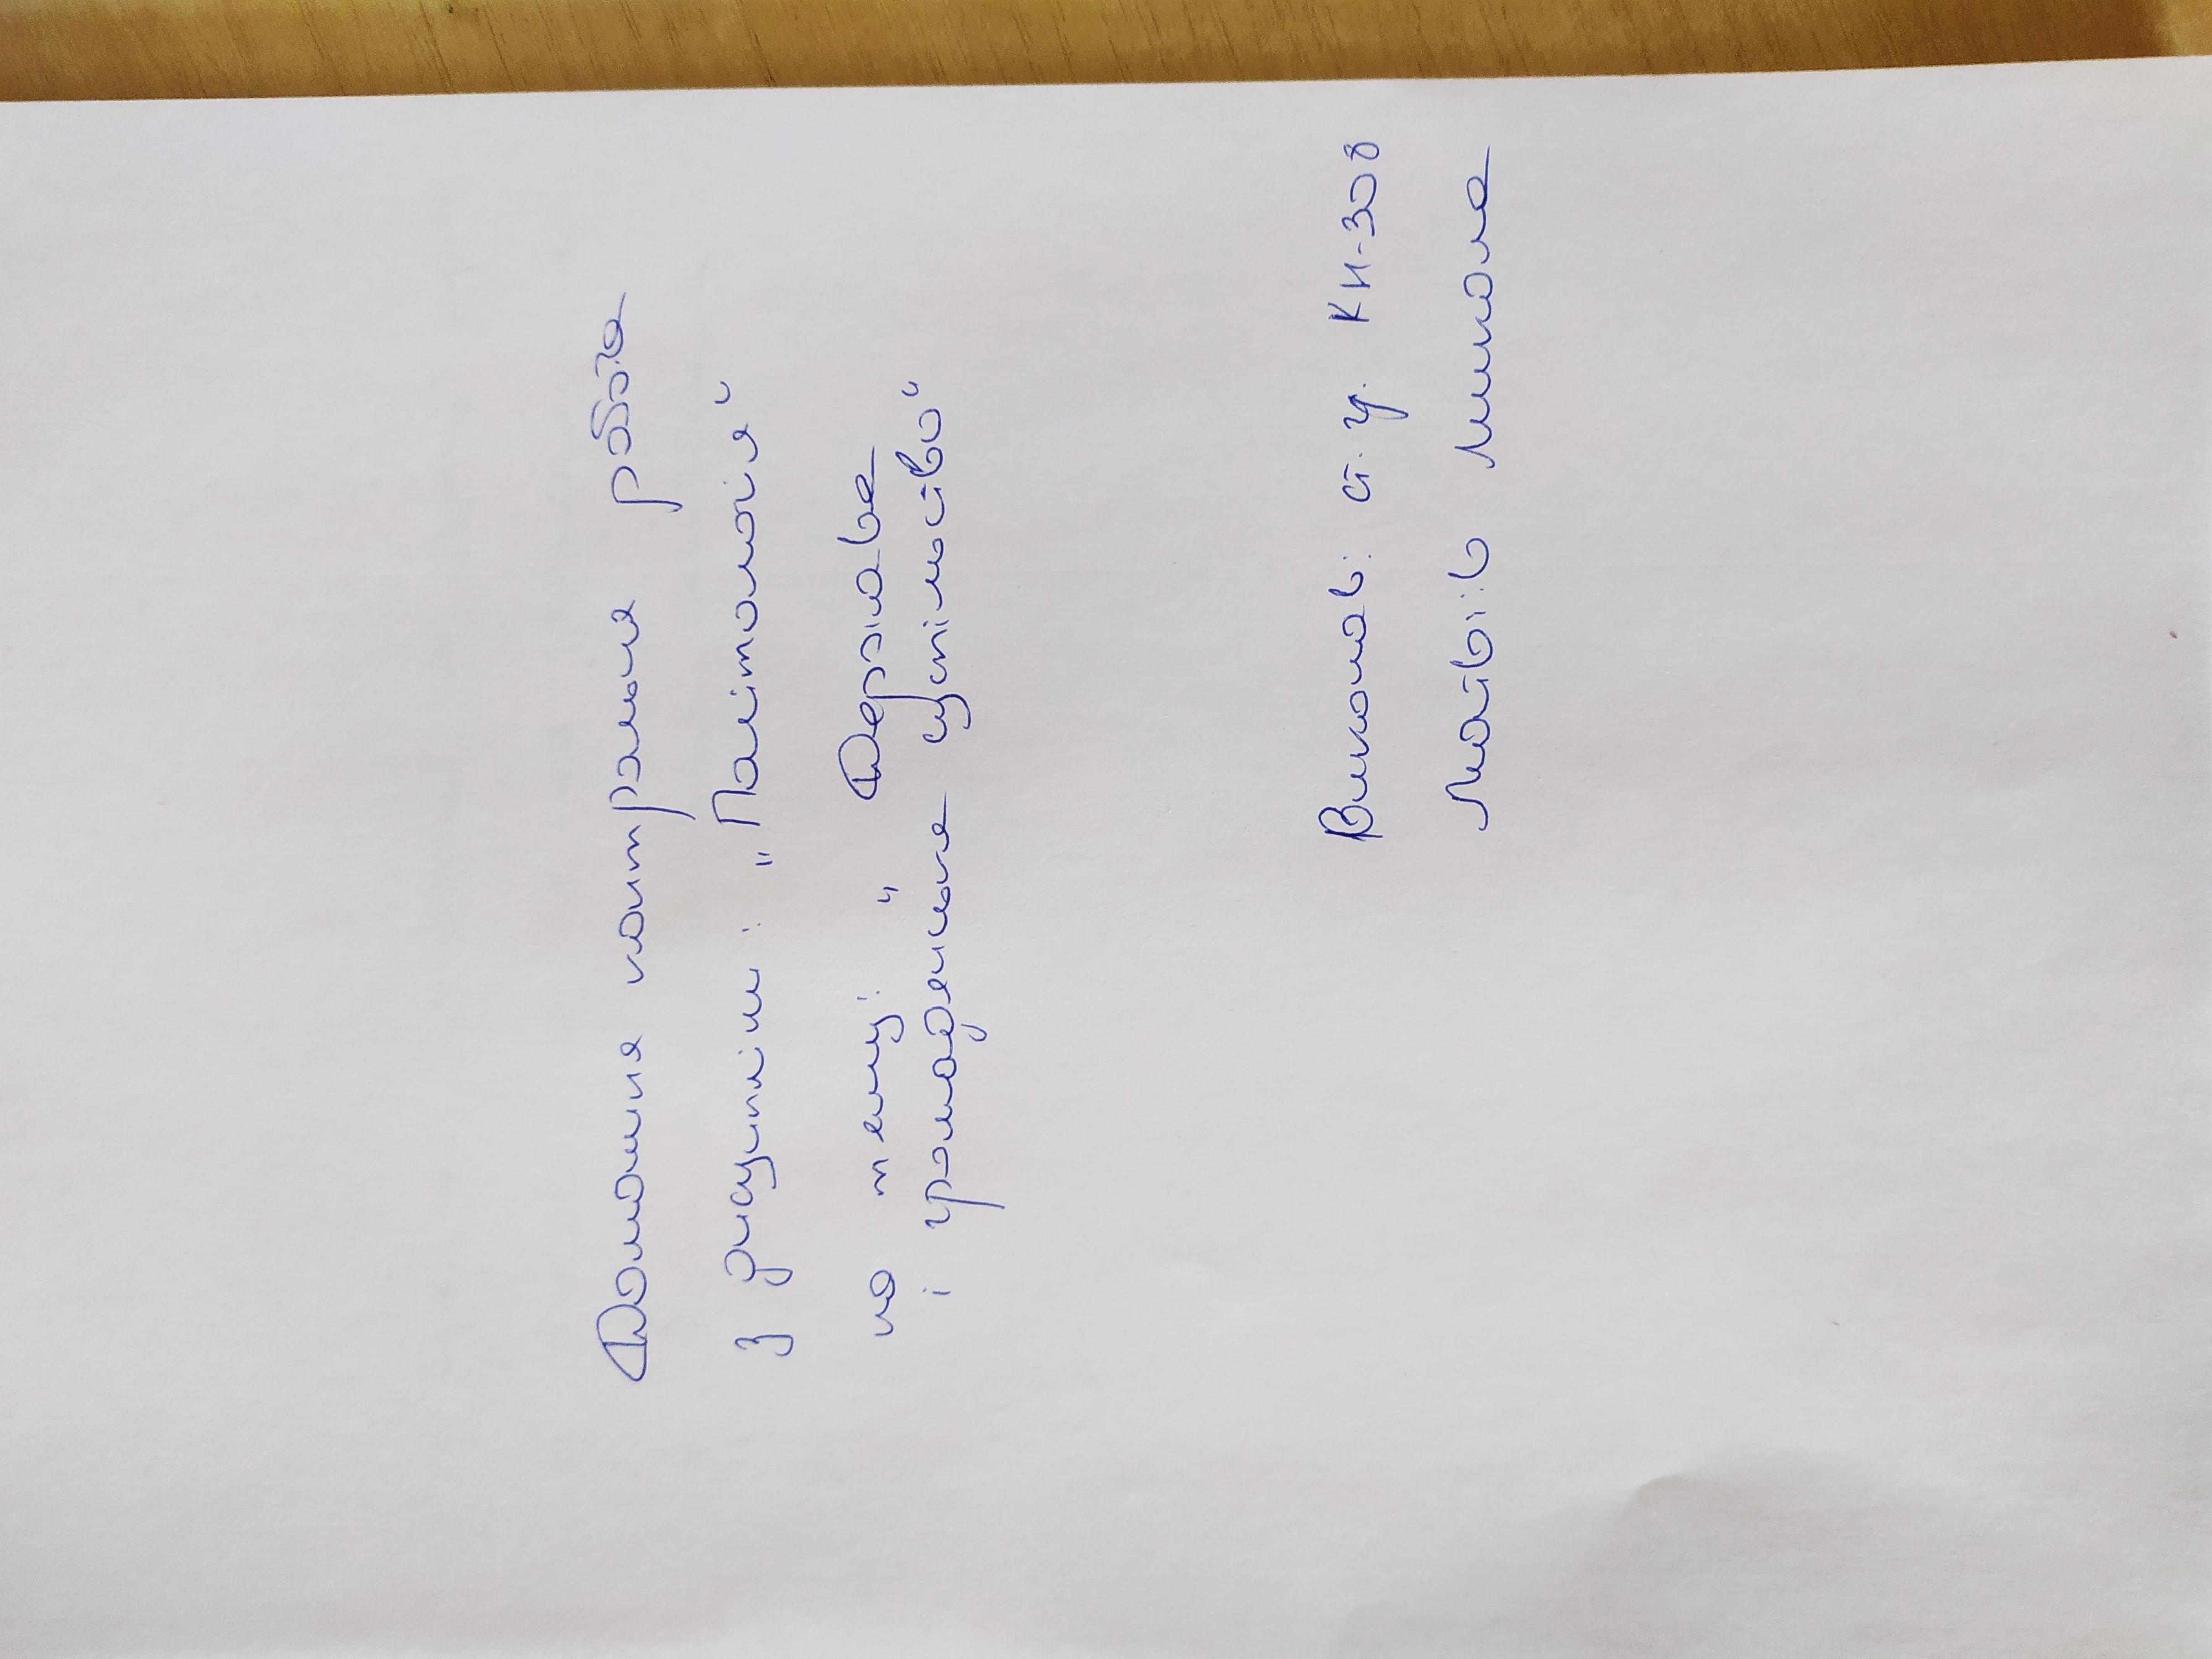 Домашня контрольна робота
з дисципліни: „Політологія“
на тему: „ Держава
і громадянське суспільство“
Виконав: ст. гр. КН-308
Матвіїв Микола